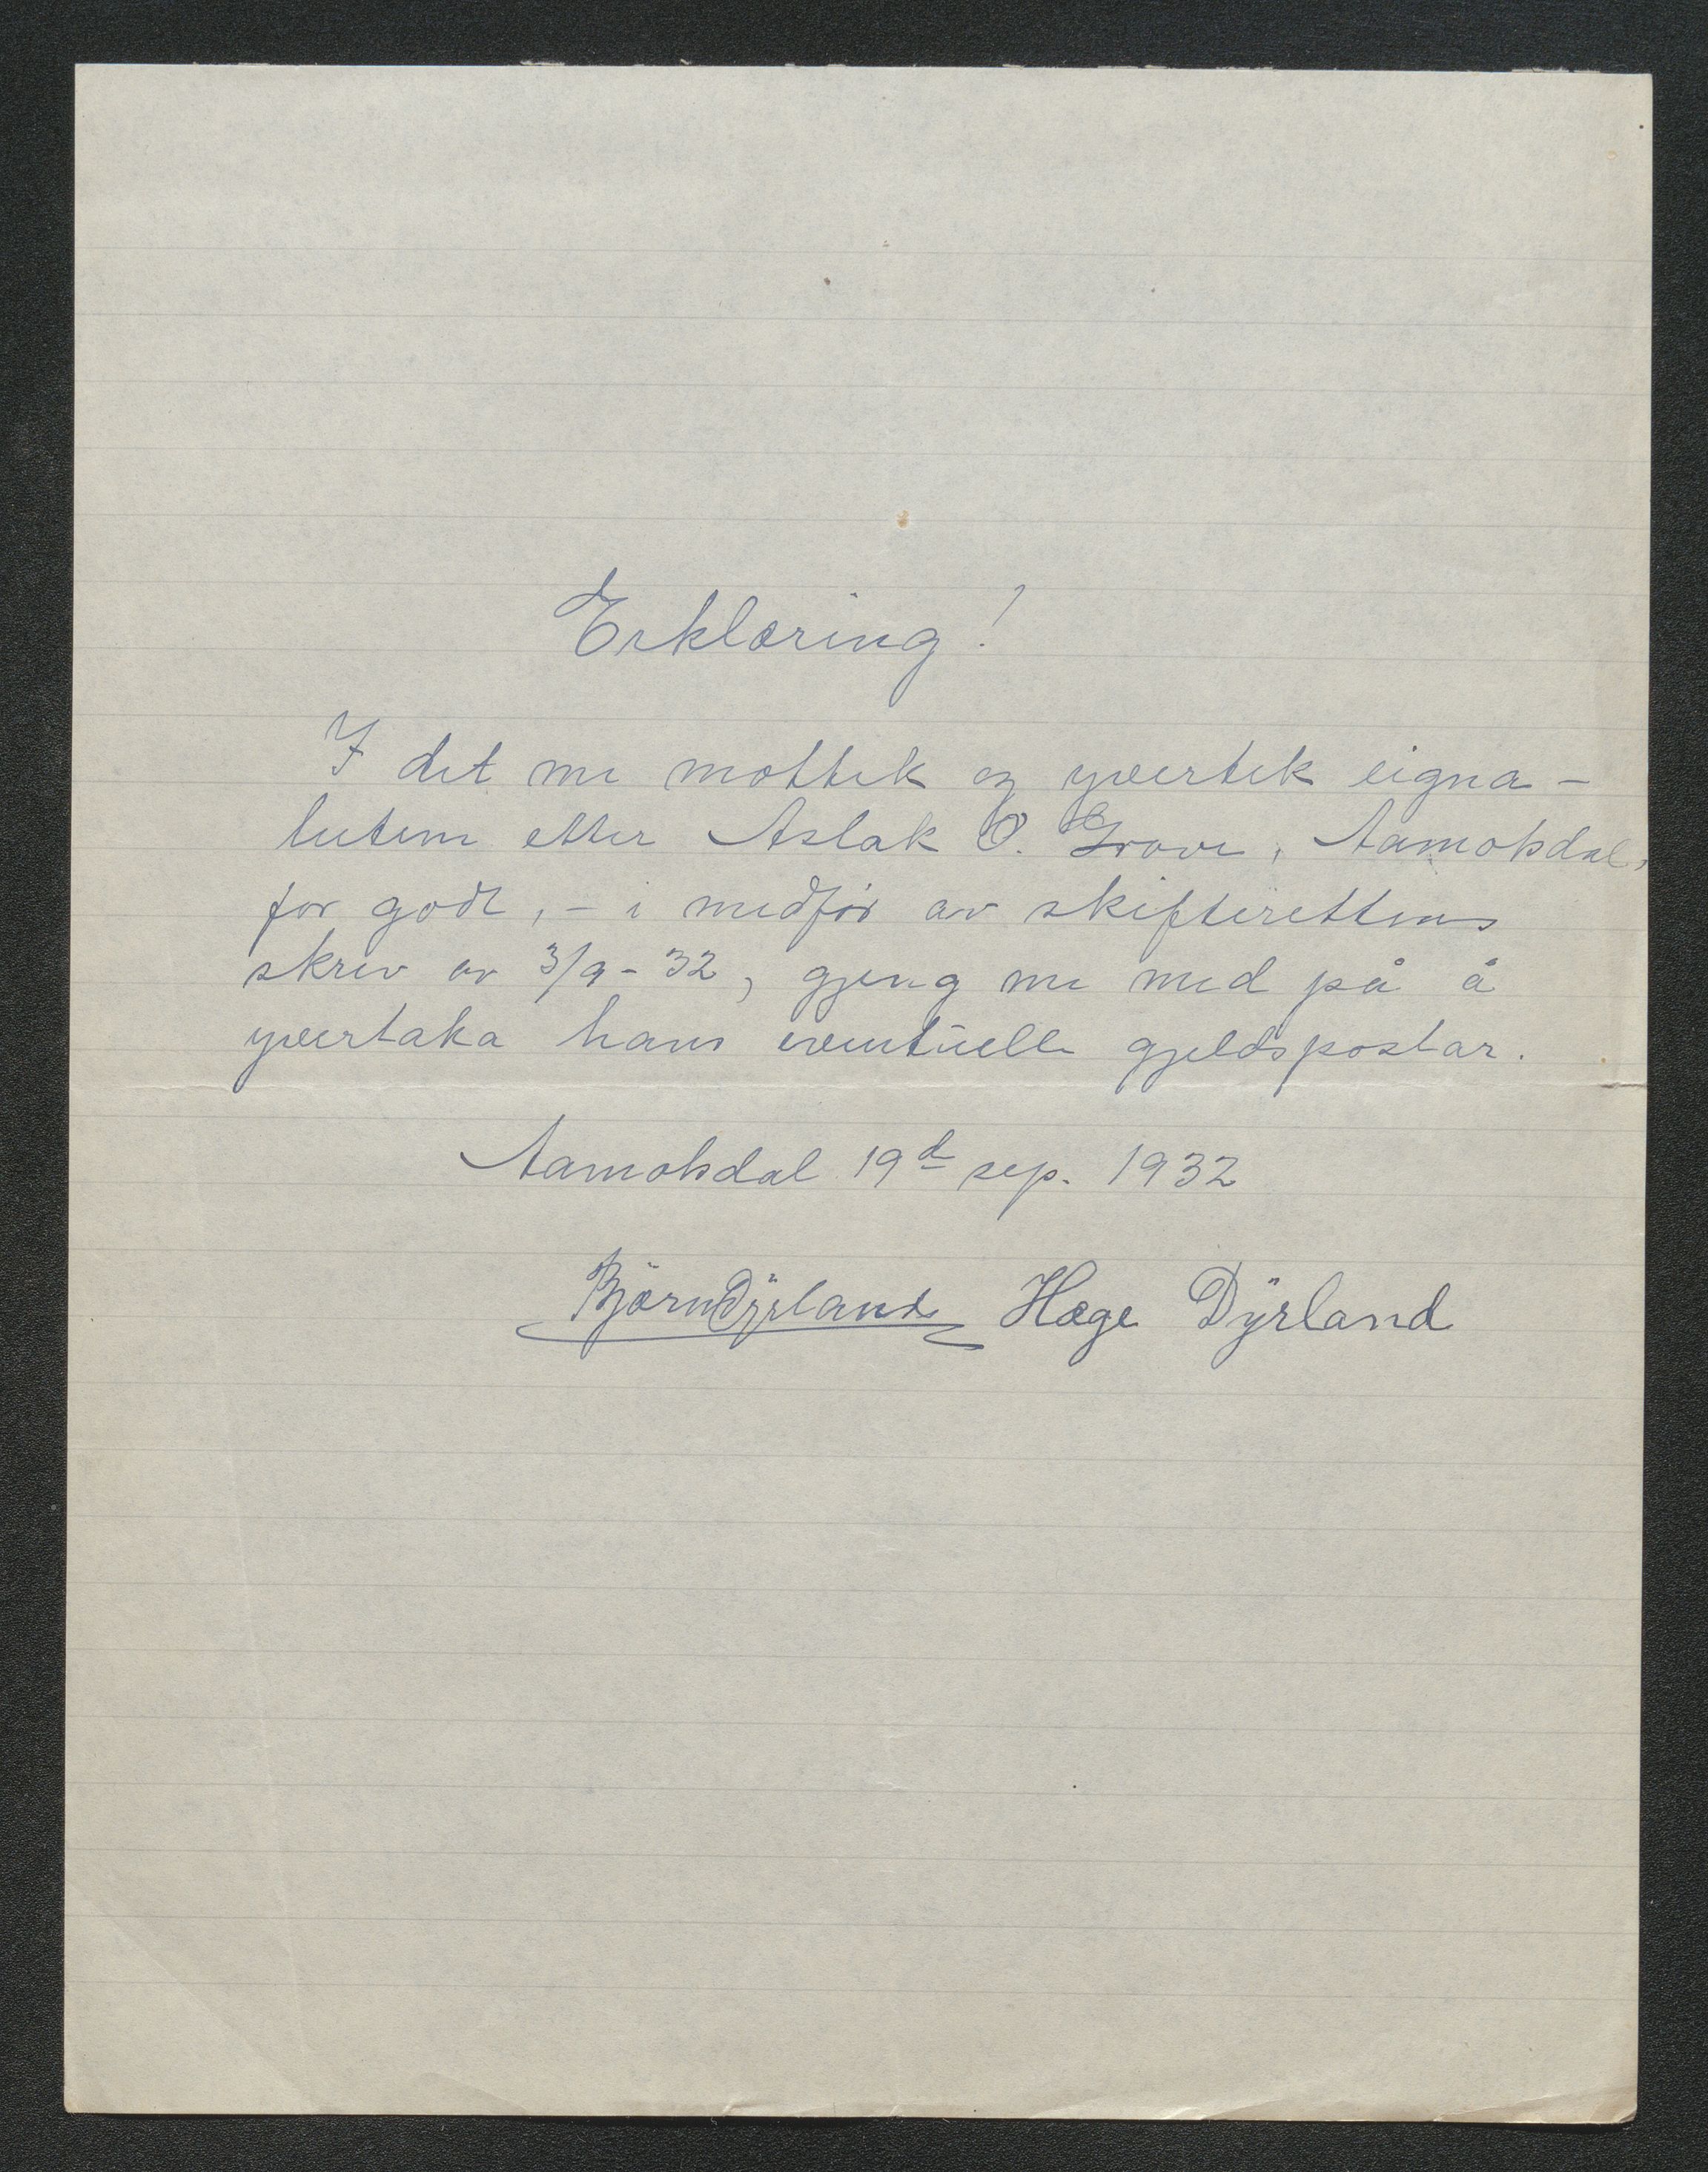 Erklæring!
I det me mottek og yvertek eigna-
luten etter Aslak O. Grave, Aamotsdal,
for godt, - i medför av skifterettens
skriv av 3/9-32, gjeng me med på å
yvertaka hans eventuelle gjeldspostar.
Aamotsdal 19d sep. 1932
Björn Dÿrland Hæge Dÿrland